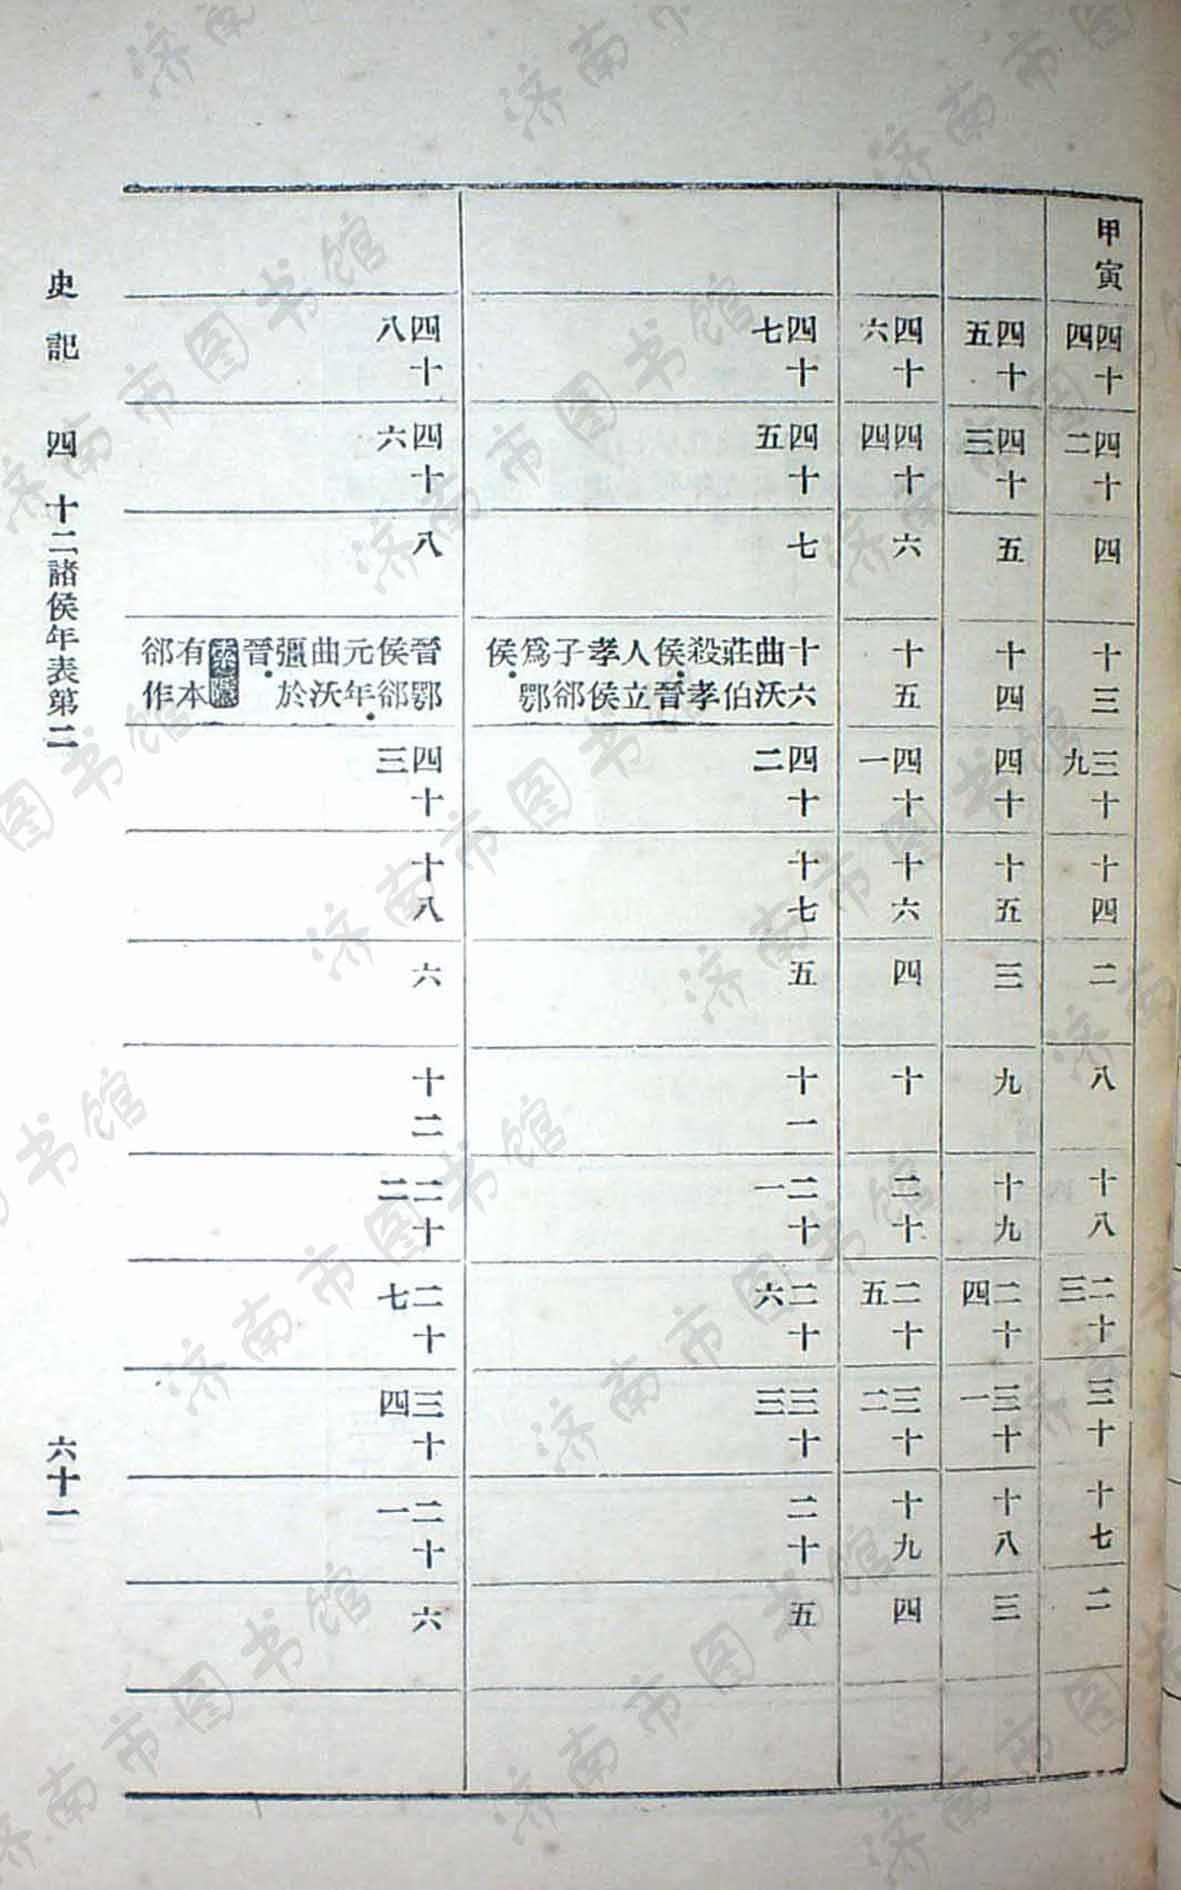 甲寅
四十四
四十二
四
十三
三十九
十四
二
八
十八
二十三
三十
十七
二
四十五
四十三
五
十四
四十
十五
三
九
十九
二十四
三十一
十八
三
四十六
四十四
六
十五
四十一
十六
四
十
二十
二十五
三十二
十九
四
四十七
四十五
七
十六
曲沃
莊伯
殺孝
侯．晉
人立
孝侯
子郤
爲鄂
侯．
四十二
十七
五
十一
二十一
二十六
三十三
二十
五
四十八
四十六
八
晉鄂
侯郤
元年．
曲沃
彊於
晉．
索隱
有本
郤作
四十三
十八
六
十二
二十二
二十七
三十四
二十一
六
史記 四 十二諸侯年表第二 六十一
济南市图书馆